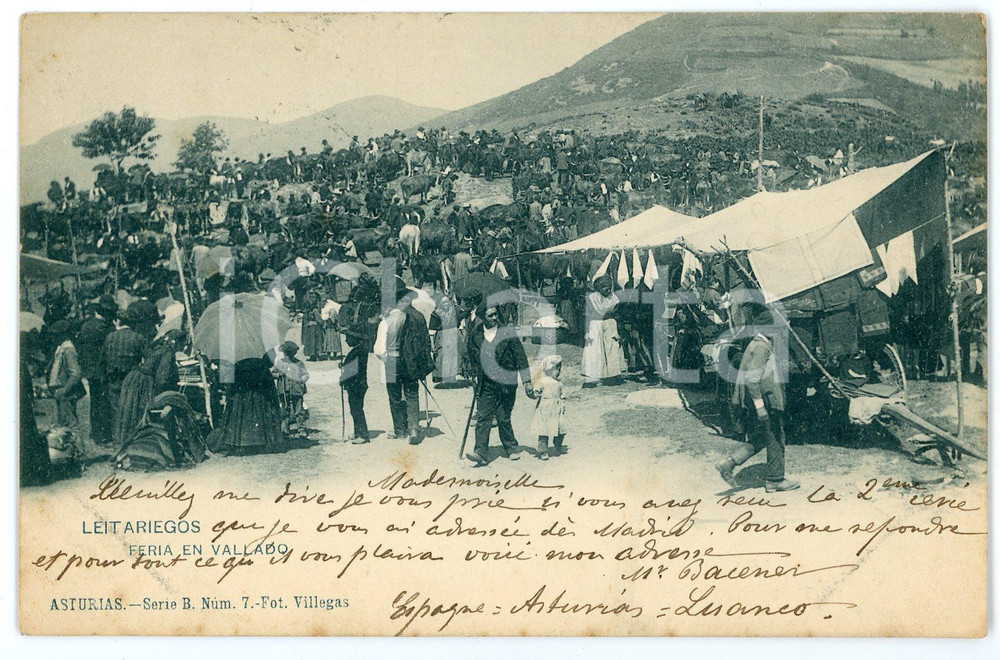 iCharta
Mademoiselle
Veuillez me dire je vous prie si vous avez reçu la 2ème série
LEITARIEGOS
que je vous ai adressée dès Madrid. Pour me répondre
FERIA EN VALLADO
et pour tout ce qu'il vous plaira voici mon adresse
Mr
ASTURIAS.—Serie B. Núm. 7.-Fot. Villegas
Espagne = Asturias = Luanco